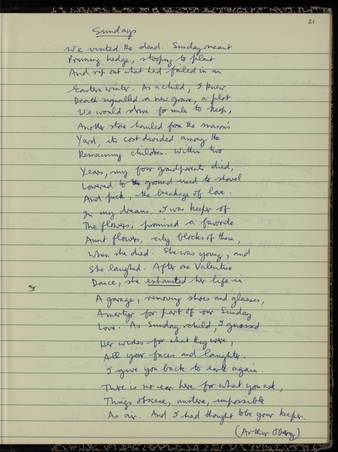 21.
Sundays
We visited the dead. Sunday meant
Pruning hedge, stooping to plant
And rip out what had failed in an
Eastern winter. As a child, I knew
Death signalled a new grave, a plot
We would drive for miles to keep,
Another stone hauled from the mason's
Yard, its cost divided among the
Remaining children. Within two
Years, my four grandparents died,
Lowered to the ground used to shovel
And pick, the breakage of love.
In my dreams, I was keeper of
The flowers, promised a favorite
Aunt flowers, city blocks of them,
When she died. She was young, and
She laughed. After one Valentine
Dance, she exhausted her life in
A garage, removing shoes and glasses,
A martyr for part of our Sunday
Love. As Sunday child, I guessed
Her wishes for what they were,
All your faces and laughter.
I give you back to earth again.
There is no ear here for what you ask,
Things obscene, austere, impossible
As air. And I had thought to be your keeper.
(Arthur Oberg)